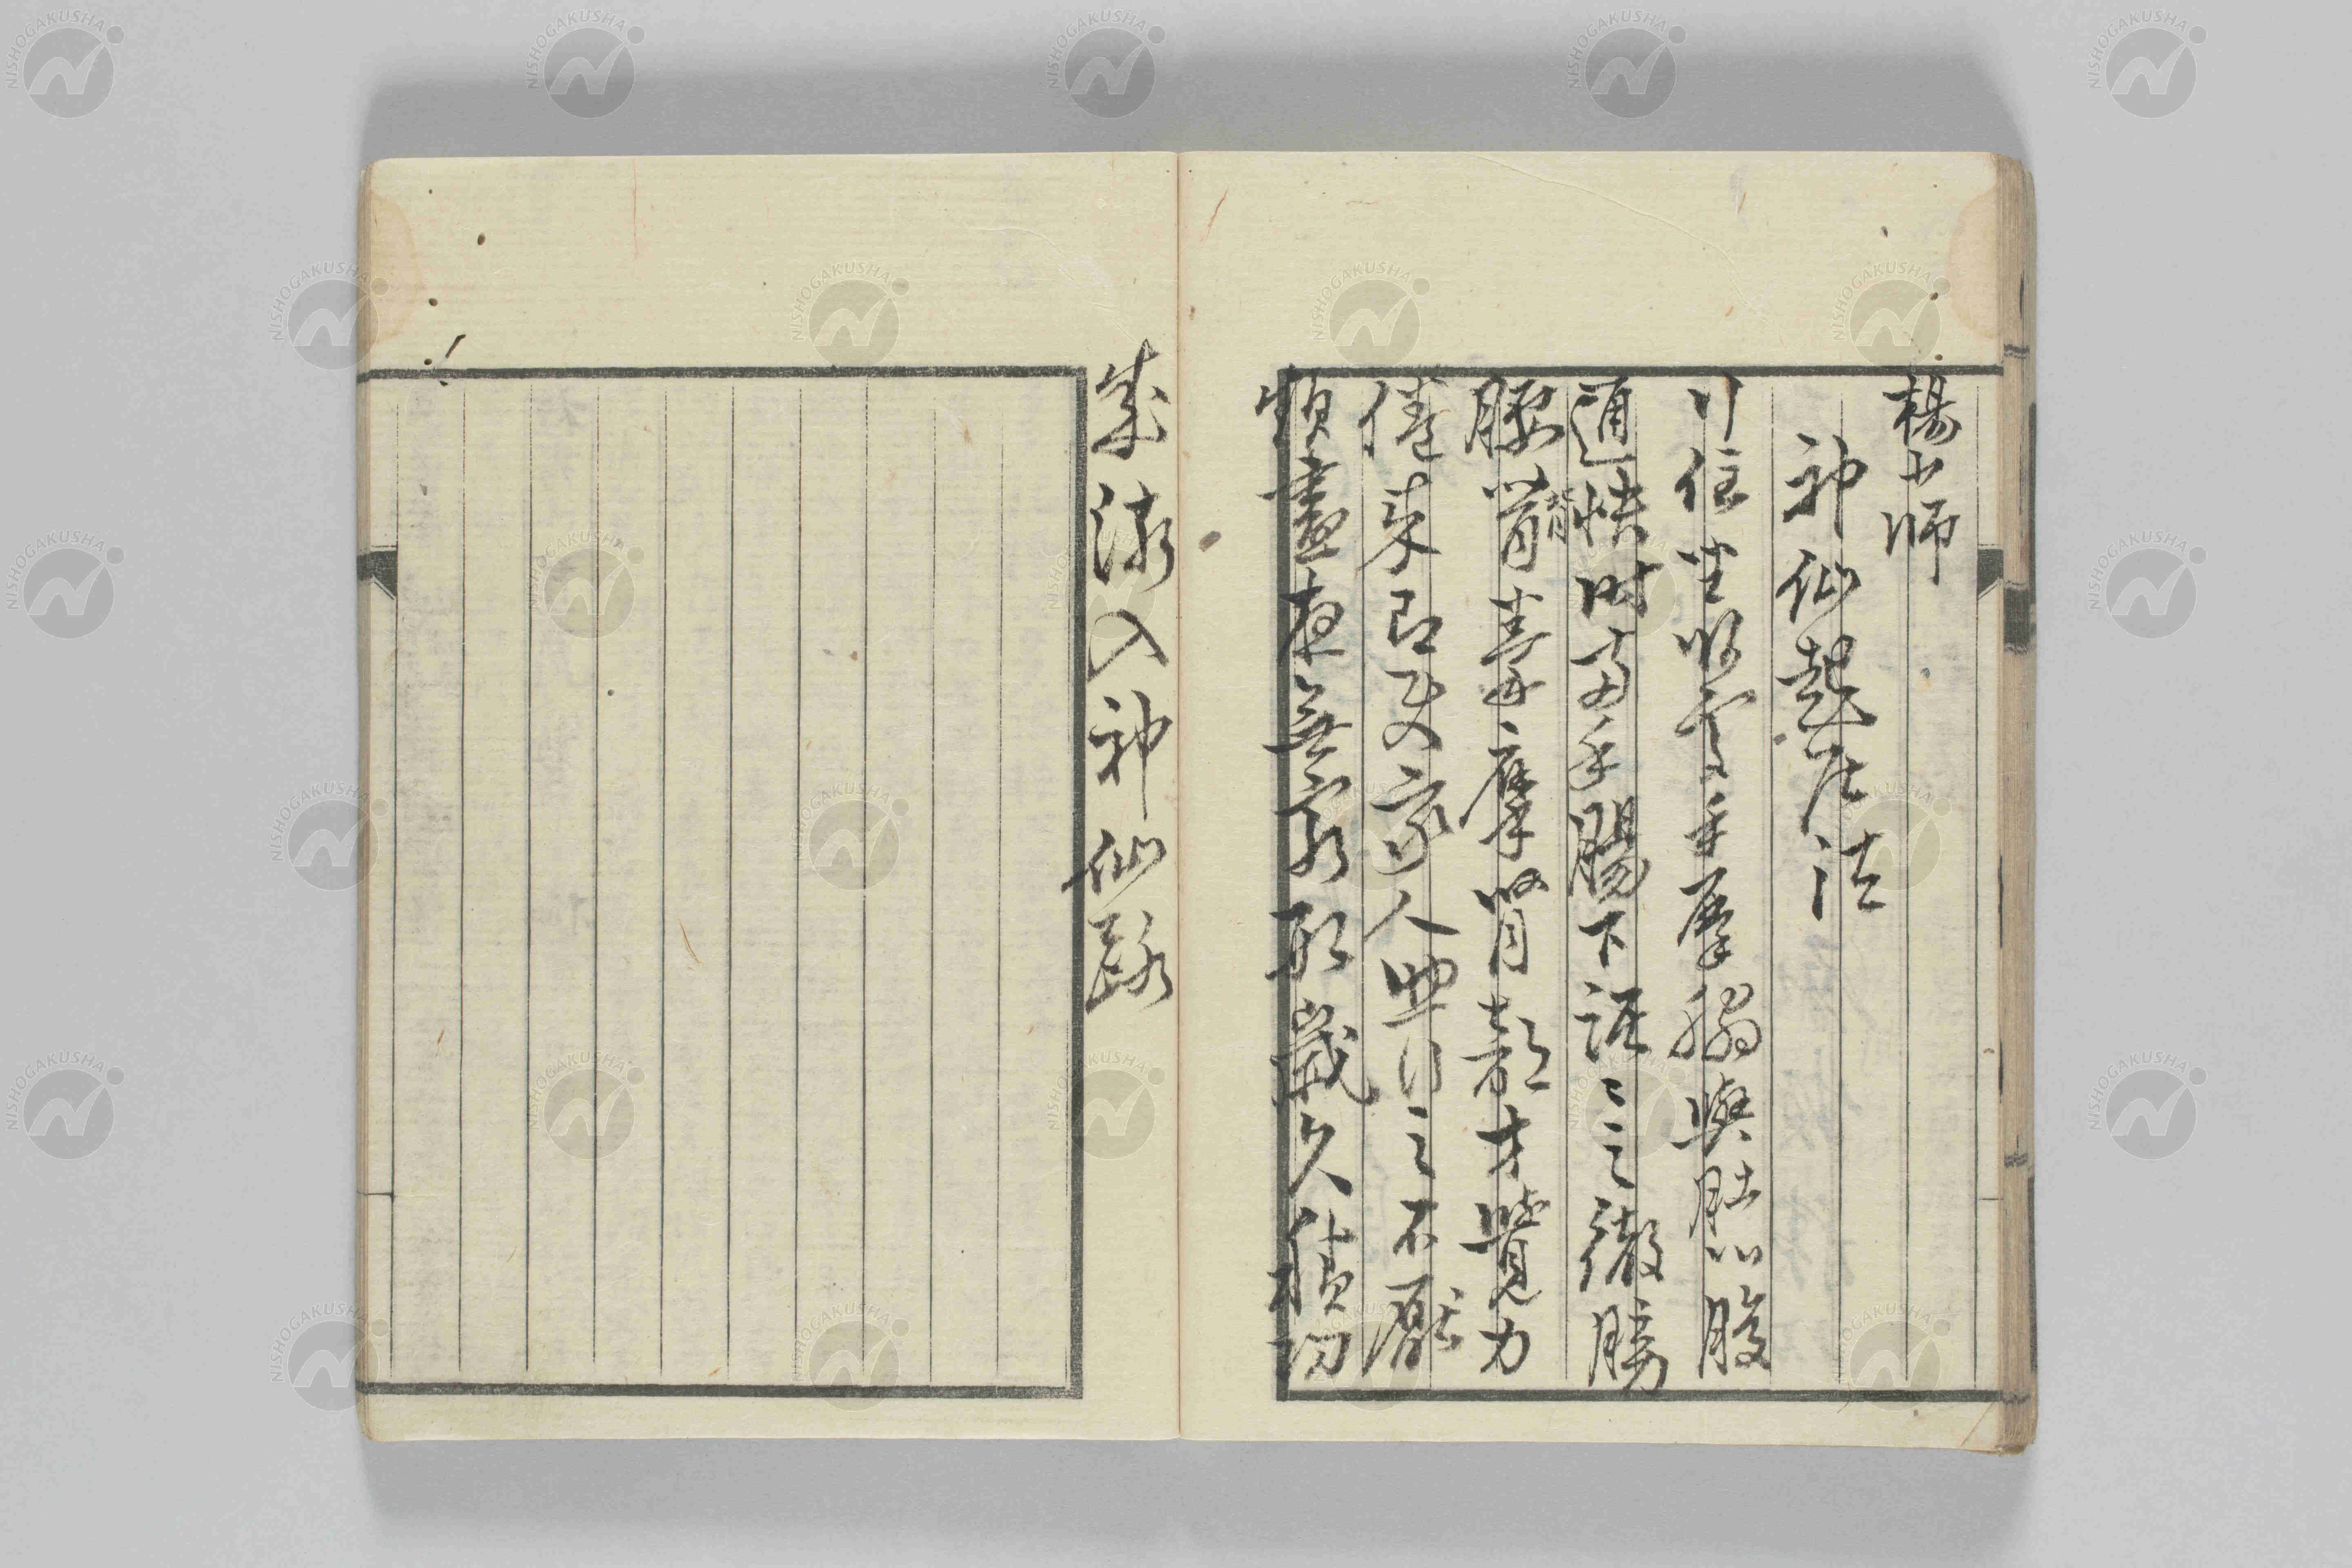 楊少師
神仙起居法
行住坐臥處手摩脇與肚心腹
通快時兩手腸下踞〻之徹膀
腰背拳摩腎部才覺力
倦來即使家人助行之不厭
頻晝夜無窮數歲久積功
成漸入神仙路
NISHOGAKUSHA